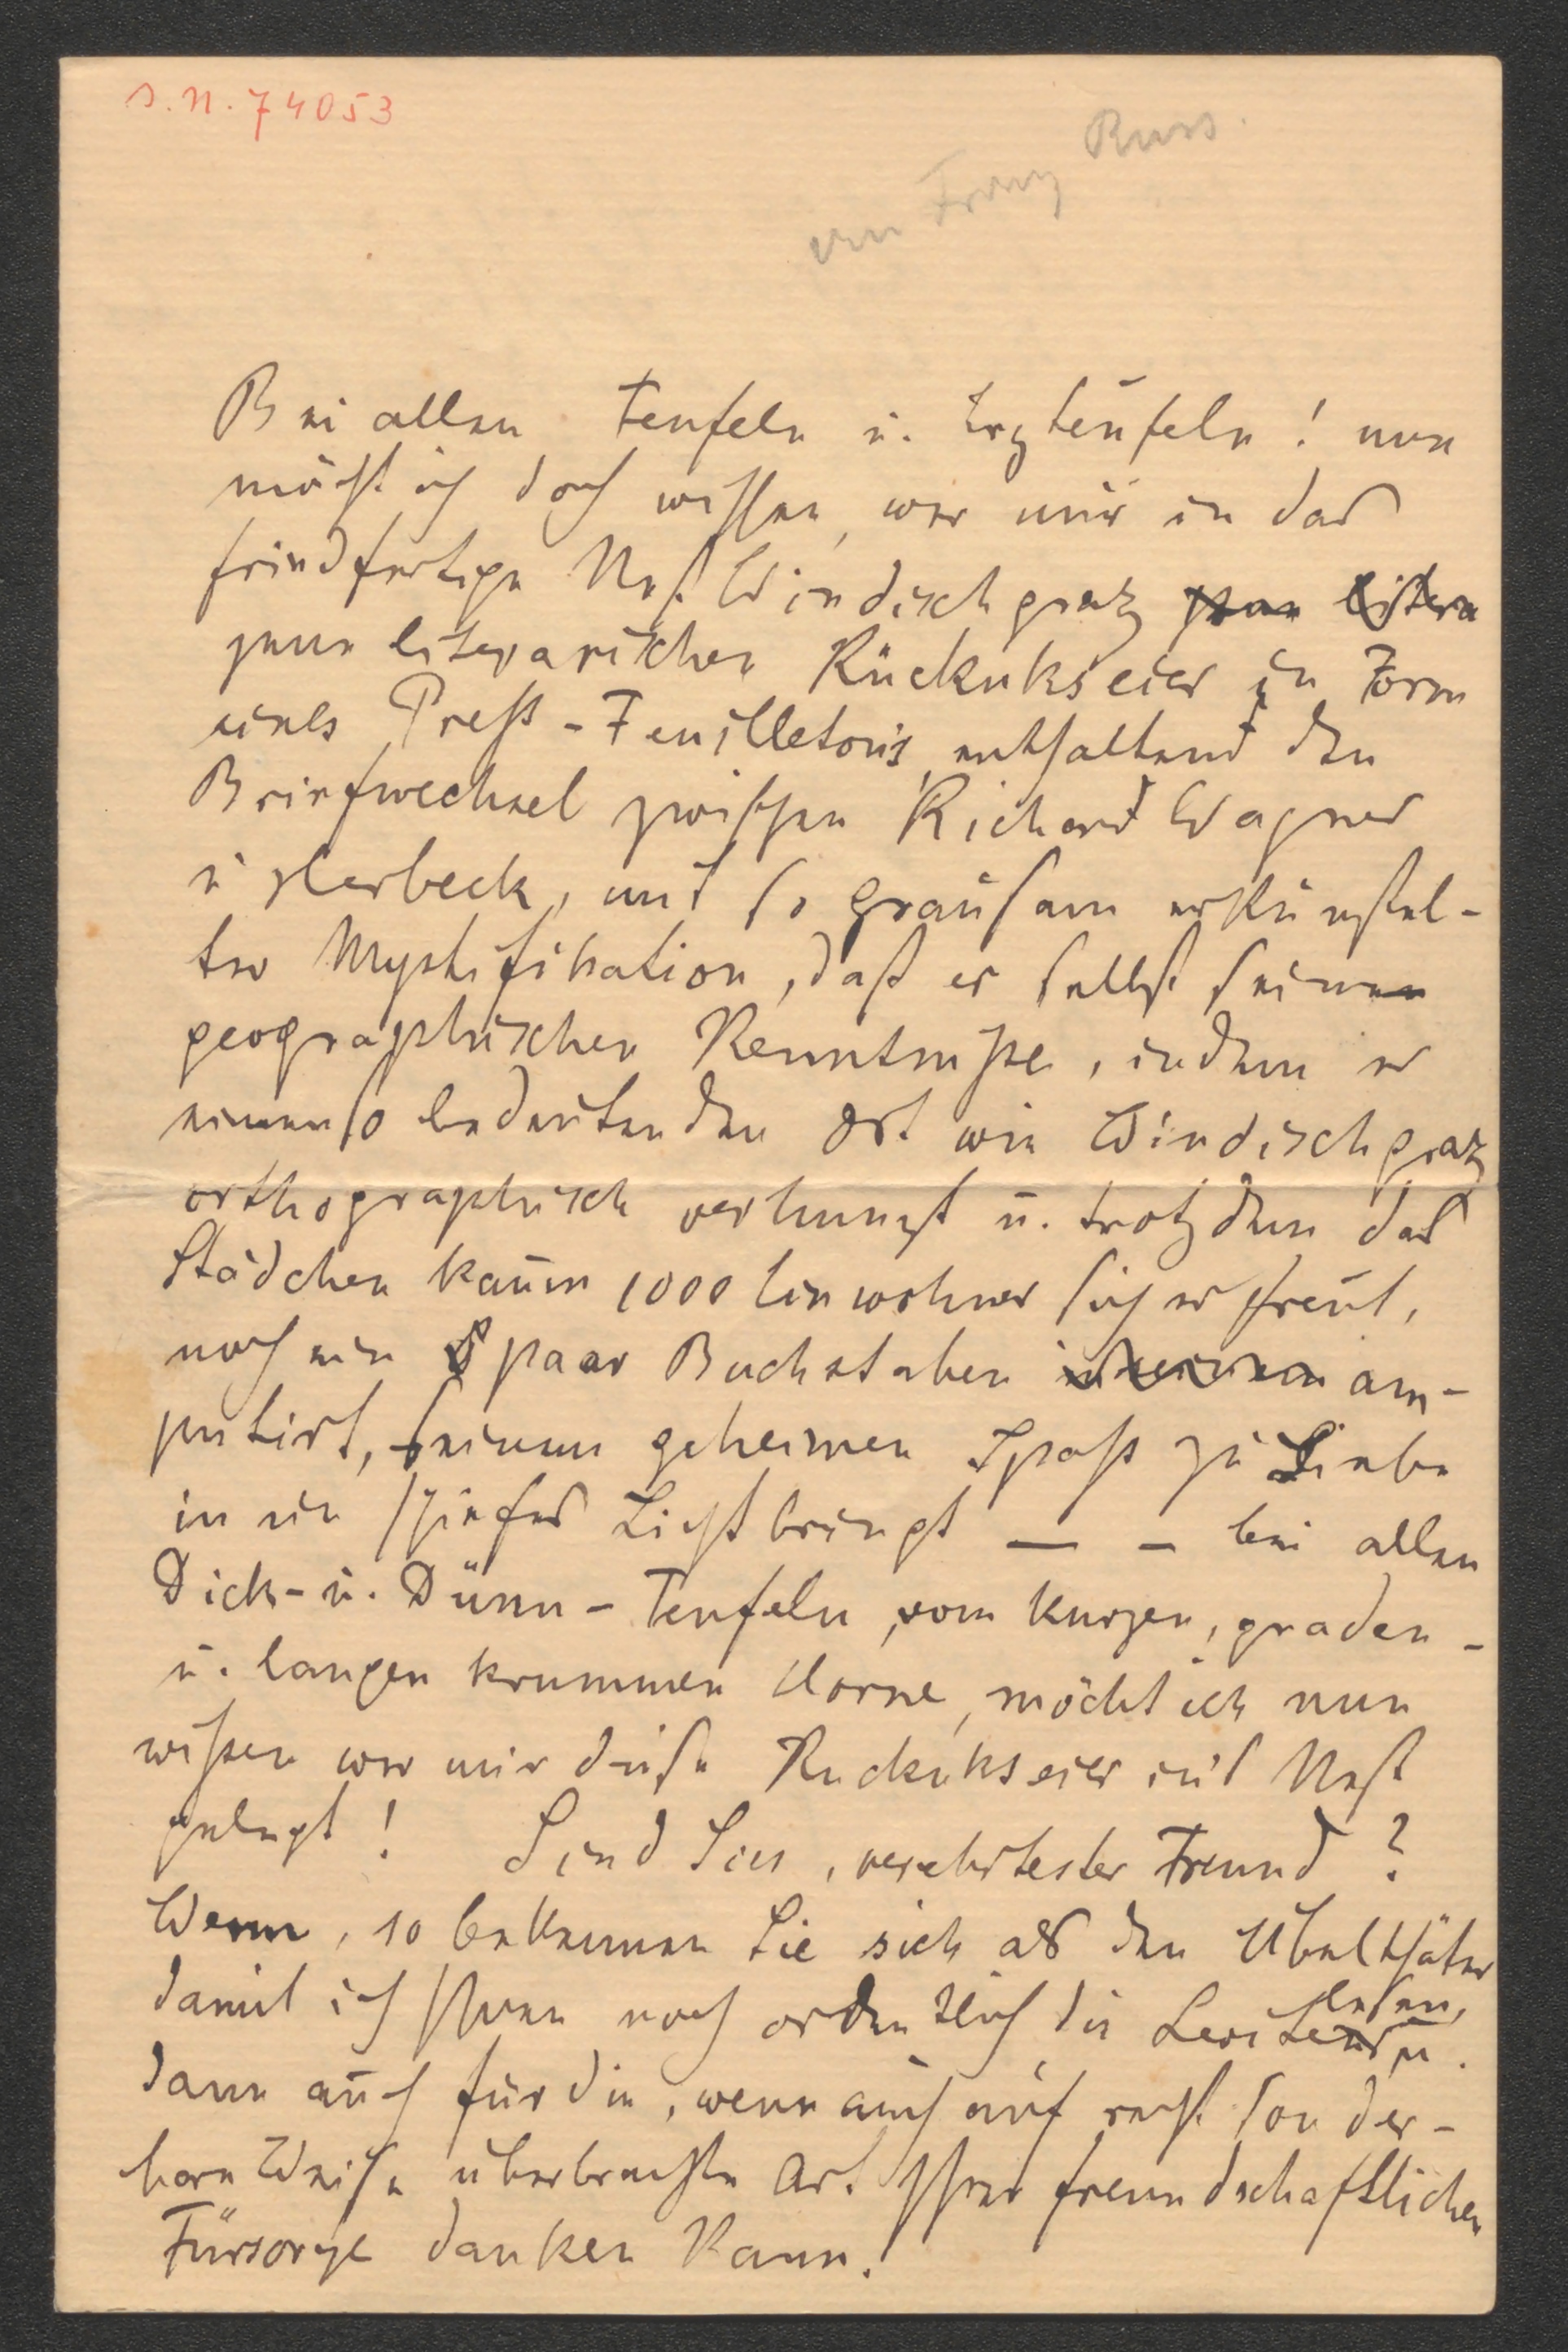 J.N. 74053
von Franz Russ.
Bei allen Teufeln u. Erzteufeln! nun
möcht ich doch wissen, wer mir in das
friedfertige Nest Windischgratz jene litera
jene literarischen Kuckukseier in Form
eines Presß-Feuilleton's, enthaltend den
Briefwechsel zwischen Richard Wagner
u Herbeck, mit so grausam erkünstel-
ter Mystifikation, daß er selbst seine
geographischen Kenntnisse, indem er
einen so bedeutenden Ort wie Windischgratz
orthographisch verhunzt u. trotzdem das
Städchen kaum 1000 Einwohner sich erfreut,
noch ein paar Buchstaben am-
putirt, seinem geheimen Spaß zu Liebe
in ein schiefes Licht bringt — – bei allen
Dick- u. Dünn-Teufeln, vom kurzen, graden-
u. langen krummen Horne, möcht ich nun
wißen wer mir diese Kuckukseier in's Nest
gelegt! Sind Sies, verehrtester Freund?
Wenn, so bekennen Sie sich als den Übelthäter
damit ich Ihnen noch ordentlich die Leviten lesen, u.
dann auch für die, wenn auch auf recht sonder-
bare Weise überbrachte Art Ihrer freundschaftlichen
Fürsorge danken kann!